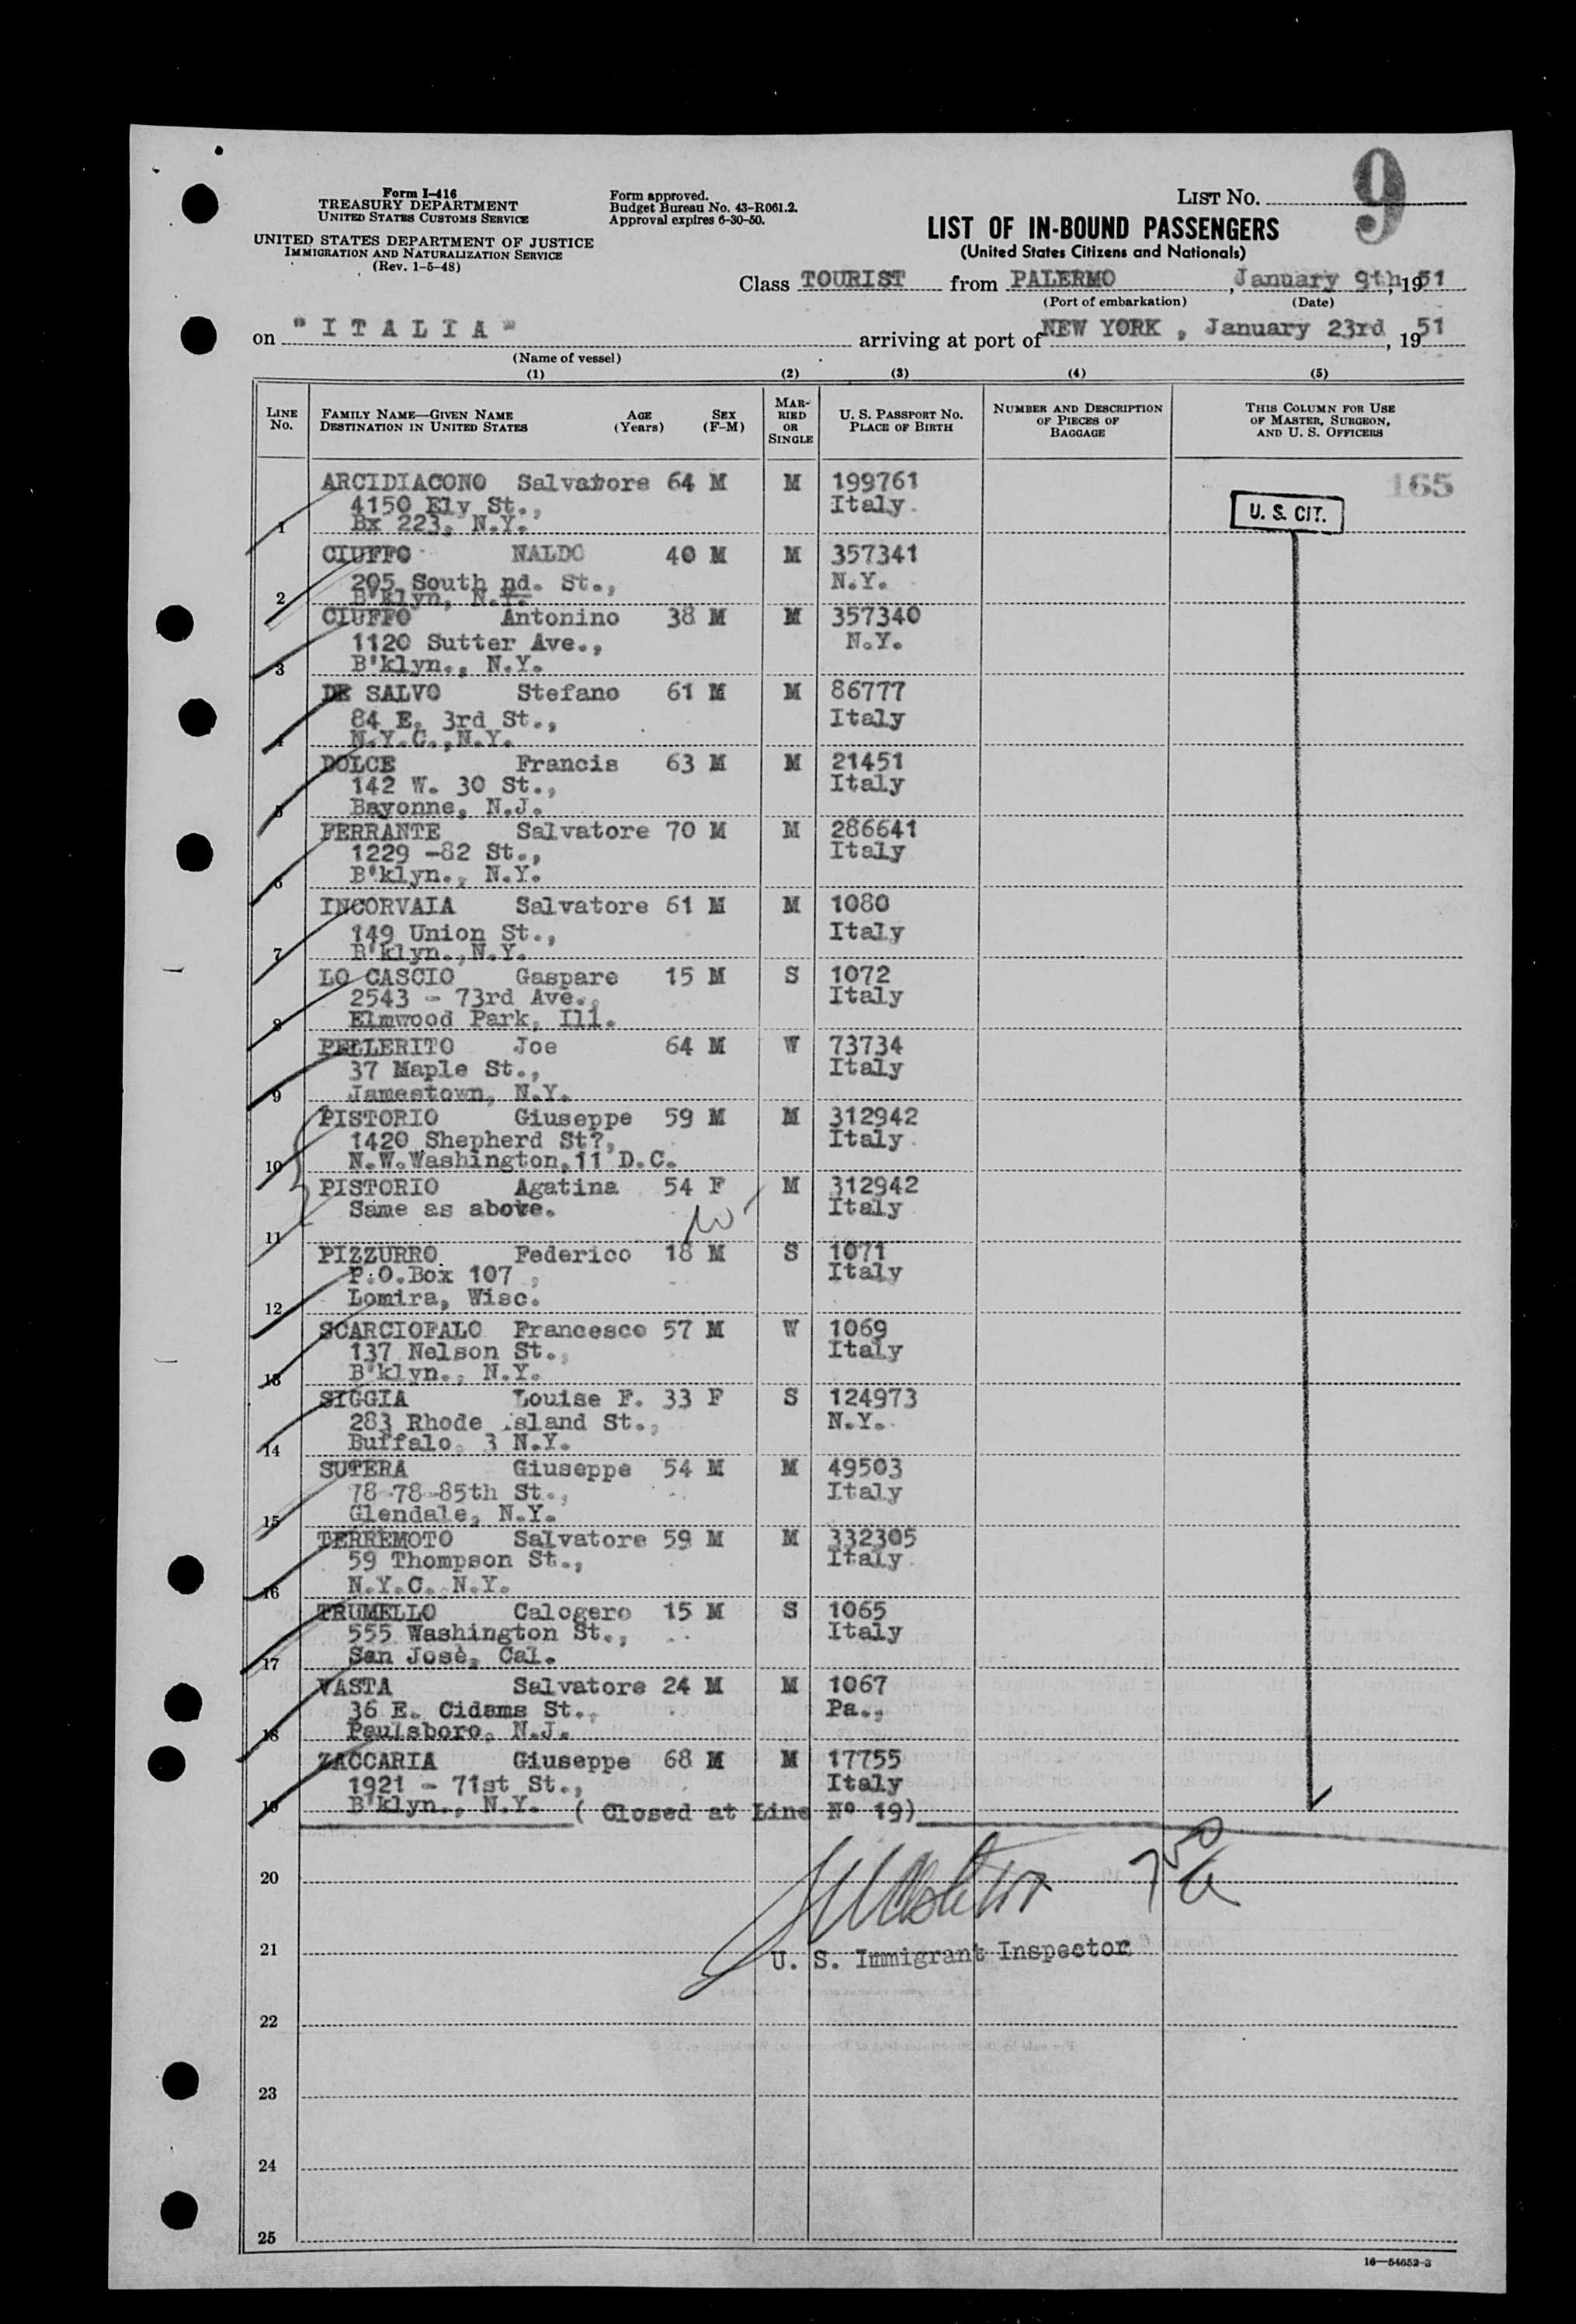 9
Form I-416
TREASURY DEPARTMENT
UNITED STATES CUSTOMS SERVICE
UNITED STATES DEPARTMENT OF JUSTICE
IMMIGRATION AND NATURALIZATION SERVICE
(Rev. 1-5-48)
Form approved.
Budget Bureau No. 43-R061.2.
Approval expires 6-30-50.
LIST NO.
LIST OF IN-BOUND PASSENGERS
(United States Citizens and Nationals)
Class TOURIST from PALERMO, January 9th, 1951
(Port of embarkation) (Date)
on "ITALIA" arriving at port of NEW YORK, January 23rd, 1951
(Name of vessel)
(1) (2) (3) (4) (5)
LINE NO.
FAMILY NAME—GIVEN NAME AGE SEX
DESTINATION IN UNITED STATES (Years) (F-M)
MARRIED OR SINGLE
U. S. PASSPORT NO.
PLACE OF BIRTH
NUMBER AND DESCRIPTION
OF PIECES OF
BAGGAGE
THIS COLUMN FOR USE
OF MASTER, SURGEON,
AND U. S. OFFICERS
165
U. S. CIT.
ARCIDIACONO Salvatore 64 M M 199761
4150 Ely St., Italy.
1 Bx 223, N.Y.
CIUFFO NALDO 40 M M 357341
205 South nd. St., N.Y.
2 B'klyn, N.Y.
CIUFFO Antonino 38 M M 357340
1120 Sutter Ave., N.Y.
3 B'klyn., N.Y.
DE SALVO Stefano 61 M M 86777
84 E. 3rd St., Italy
4 N.Y.C.,N.Y.
DOLCE Francis 63 M M 21451
142 W. 30 St., Italy
5 Bayonne, N.J.
FERRANTE Salvatore 70 M M 286641
1229 -82 St., Italy
6 B'klyn., N.Y.
INCORVAIA Salvatore 61 M M 1080
149 Union St., Italy
7 B'klyn.,N.Y.
LO CASCIO Gaspare 15 M S 1072
2543 - 73rd Ave., Italy
8 Elmwood Park, Ill.
PELLERITO Joe 64 M W 73734
37 Maple St., Italy
9 Jamestown, N.Y.
PISTORIO Giuseppe 59 M M 312942
1420 Shepherd St?, Italy.
10 N.W.Washington,11 D.C.
PISTORIO Agatina 54 F M 312942
Same as above. Italy
11
PIZZURRO. Federico 18 M S 1071
P.O.Box 107 , Italy
12 Lomira, Wisc.
SCARCIOFALO Francesco 57 M W 1069
137 Nelson St., Italy
13 B'klyn., N.Y.
SIGGIA Louise F. 33 F S 124973
283 Rhode island St., N.Y.
14 Buffalo, 3 N.Y.
SUTERA Giuseppe 54 M M 49503
78-78-85th St., Italy
15 Glendale, N.Y.
TERREMOTO Salvatore 59 M M 332305
59 Thompson St., Italy.
16 N.Y.C. N.Y.
TRUMELLO Calogero 15 M S 1065
555 Washington St., Italy
17 San Josè, Cal.
VASTA Salvatore 24 M M 1067
36 E. Cidams St., Pa.,
18 Paulsboro, N.J.
ZACCARIA Giuseppe 68 M M 17755
1921 - 71st St., Italy
19 B'klyn., N.Y. ( Closed at Line Nº 19)
20
21 U. S. Immigrant Inspector
22
23
24
25
16—54652-3